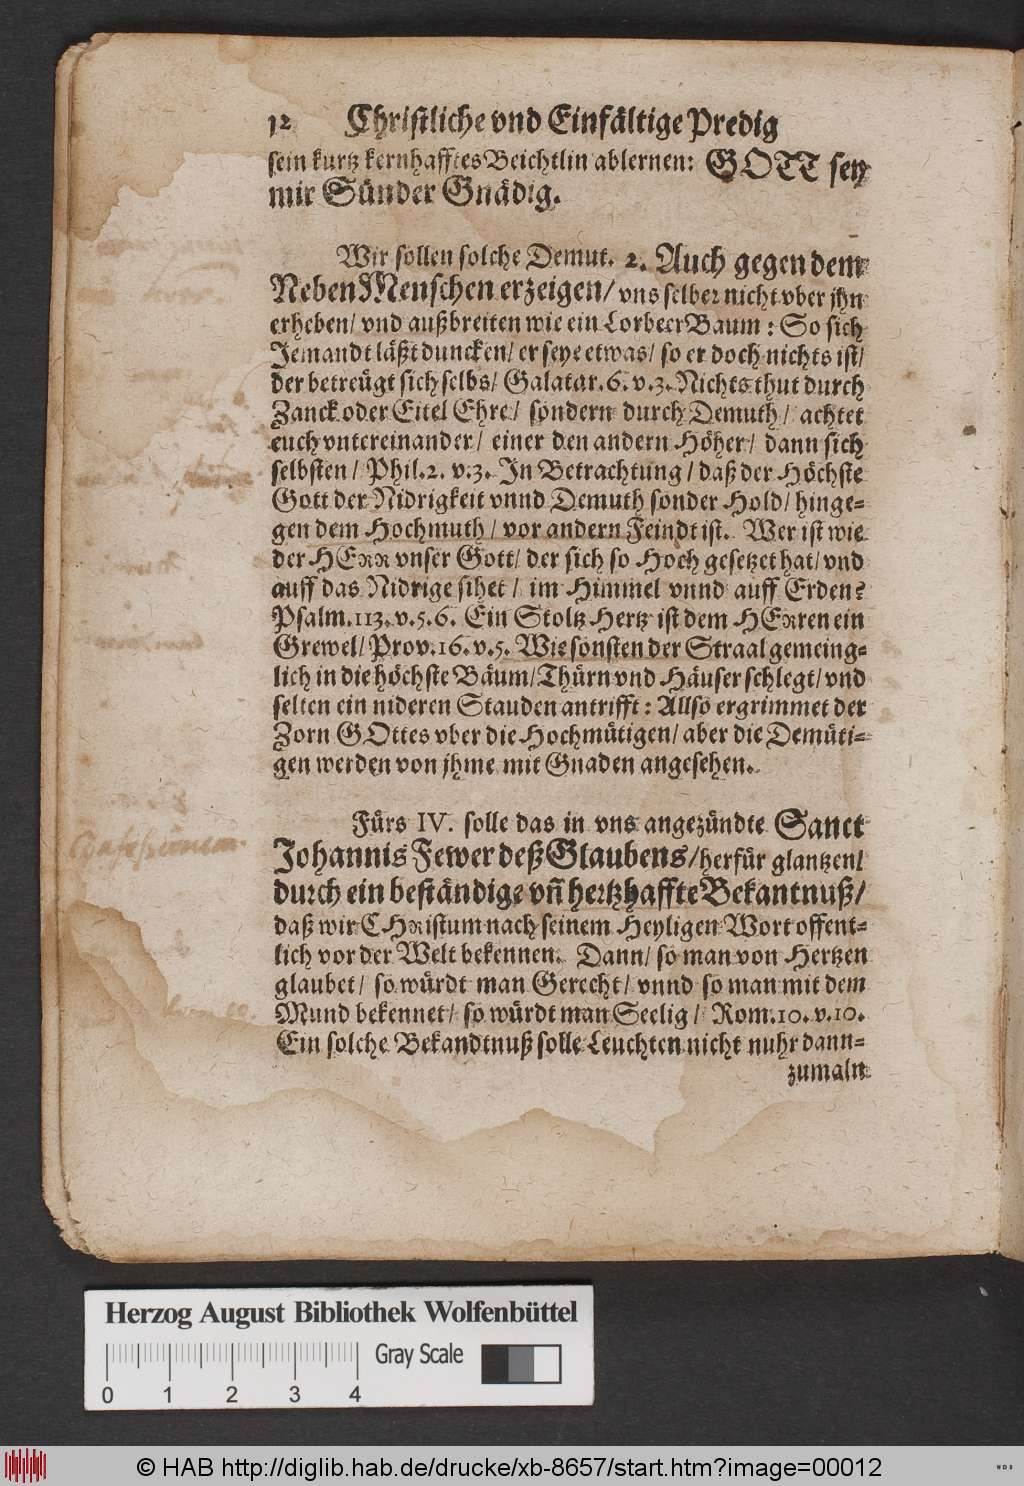 12 Christliche vnd Einfältige Predig
sein kurtz kernhafftes Beichtlin ablernen: GOTT sey
mir Sünder Gnädig.
Wir sollen solche Demut. 2. Auch gegen dem
Neben Menschen erzeigen/ vns selber nicht vber jhn
erheben/ vnd außbreiten wie ein LorbeerBaum: So sich
Jemandt läßt duncken/ er seye etwas/ so er doch nichts ist/
der betreügt sich selbs/ Galatar. 6. v. 3. Nichts thut durch
Zanck oder Eitel Ehre/ sondern durch Demuth/ achtet
euch vntereinander/ einer den andern Höher/ dann sich
selbsten/ Phil. 2. v. 3. In Betrachtung/ daß der Höchste
Gott der Nidrigkeit vnnd Demuth sonder Hold/ hinge-
gen dem Hochmuth/ vor andern Feindt ist. Wer ist wie
der HERR vnser Gott/ der sich so Hoch gesetzet hat/ vnd
auff das Nidrige sihet/ im Himmel vnnd auff Erden?
Psalm. 113. v. 5. 6. Ein Stoltz Hertz ist dem HERren ein
Grewel/ Prov. 16. v. 5. Wie sonsten der Straal gemeing-
lich in die höchste Bäum/ Thürn vnd Häuser schlegt/ vnd
selten ein nideren Stauden antrifft: Allso ergrimmet der
Zorn GOttes vber die Hochmütigen/ aber die Demüti-
gen werden von jhme mit Gnaden angesehen.
Fürs IV. solle das in vns angezündte Sanct
Johannis Fewer deß Glaubens/ herfür glantzen/
durch ein beständige vñ hertzhaffte Bekantnuß/
daß wir CHRistum nach seinem Heyligen Wort offent-
lich vor der Welt bekennen. Dann/ so man von Hertzen
glaubet/ so würdt man Gerecht/ vnnd so man mit dem
Mund bekennet/ so würdt man Seelig/ Rom. 10. v. 10.
Ein solche Bekandtnuß solle Leuchten nicht nuhr dann-
zumaln
Herzog August Bibliothek Wolfenbüttel
Gray Scale
0 1 2 3 4
© HAB http://diglib.hab.de/drucke/xb-8657/start.htm?image=00012